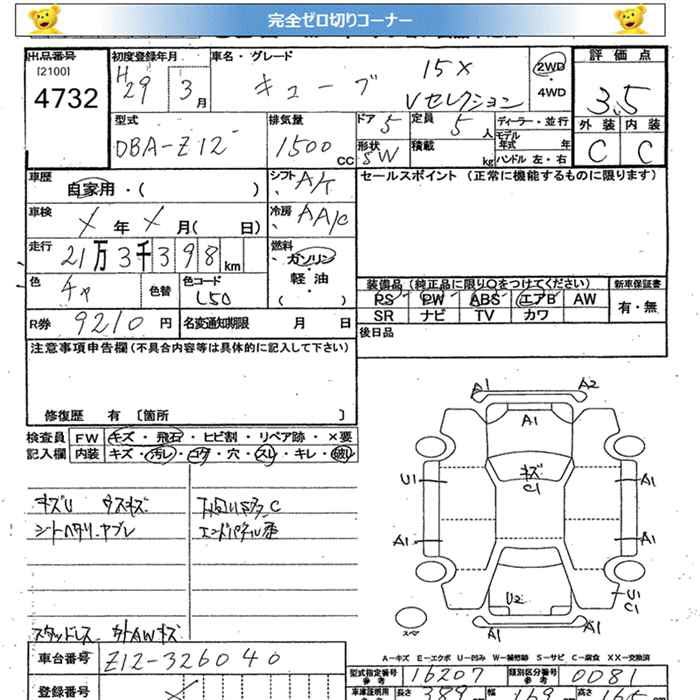 完全ゼロ切りコーナー
出品番号 初度登録年月 車名・グレード 評価点
[2100] H 29 3月 キューブ 15X Vセレクション 2WD 4WD 3.5
4732
型式 排気量 ドア 5 定員 5人 ディーラー・並行 外装 内装
DBA-Z12 1500cc 形状 SW 積載 kg モデル年式 年 C C
ハンドル 左・右
車歴 自家用・( ) シフト A/T セールスポイント (正常に機能するものに限ります)
車検 X年X月( 日) 冷房 AA/C
走行 21万3千398km 燃料 ガソリン・軽油( )
色 チャ 色替 色コード L50 装備品 (純正品に限り○をつけてください) 新車保証書
PS PW ABS エアB AW 有・無
SR ナビ TV カワ
R券 9210円 名変通知期限 月 日 後日品
注意事項申告欄(不具合内容等は具体的に記入して下さい)
修復歴 有 〔箇所 〕
検査員 FW キズ・飛石・ヒビ割・リペア跡・×要
記入欄 内装 キズ・汚レ・コゲ・穴・スレ・キレ・破レ
キズU
シートヘタリ、ヤブレ
エンドパネル
スタッドレス 外AWキズ
A1 A2
A1
キズ
C1
U1 A1
A1 A1
U2 U1
C1
A1 A1
スペア
A-キズ E-エクボ U-凹み W-補修跡 S-サビ C-腐食 XX-交換済
車台番号 Z12-326040
型式指定番号 参考 16207 類別区分番号 参考 0081
登録番号
車庫証明用 長さ 389 幅 169 高さ 165